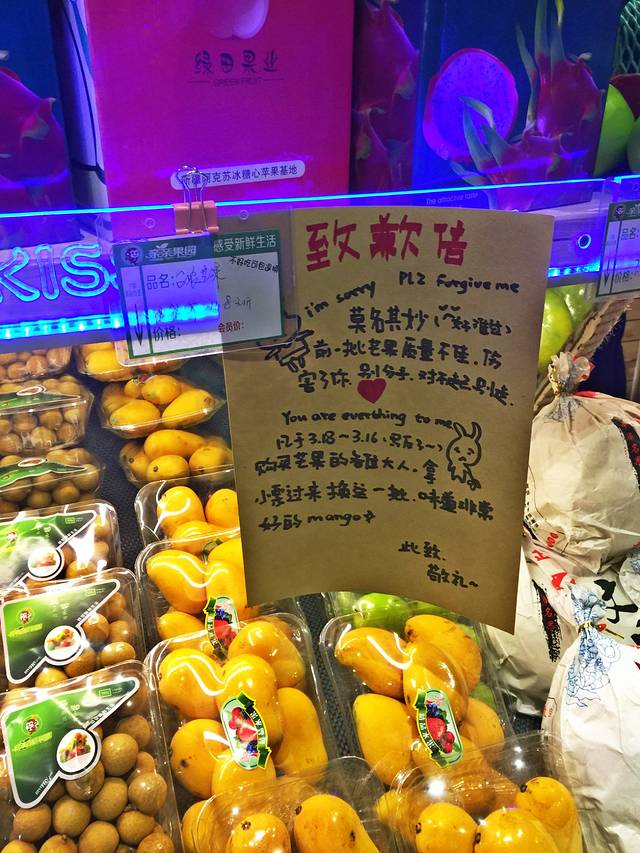 绿田果业
GREEN FRUIT
克苏冰糖心苹果基地
The attractive taste
KIS
果园
感受新鲜生活
品名:
价格:
会员价:
致歉信
PLZ Forgive me
i'm sorry
莫名其妙
前一批芒果质量不佳,伤
害了你,别分手,对不起,别走.
You are everthing to me
凡于3.13~3.16
购买芒果的各位大人,拿
小票过来换这一批,味道非常
好的mango
此致.
敬礼~
品名: